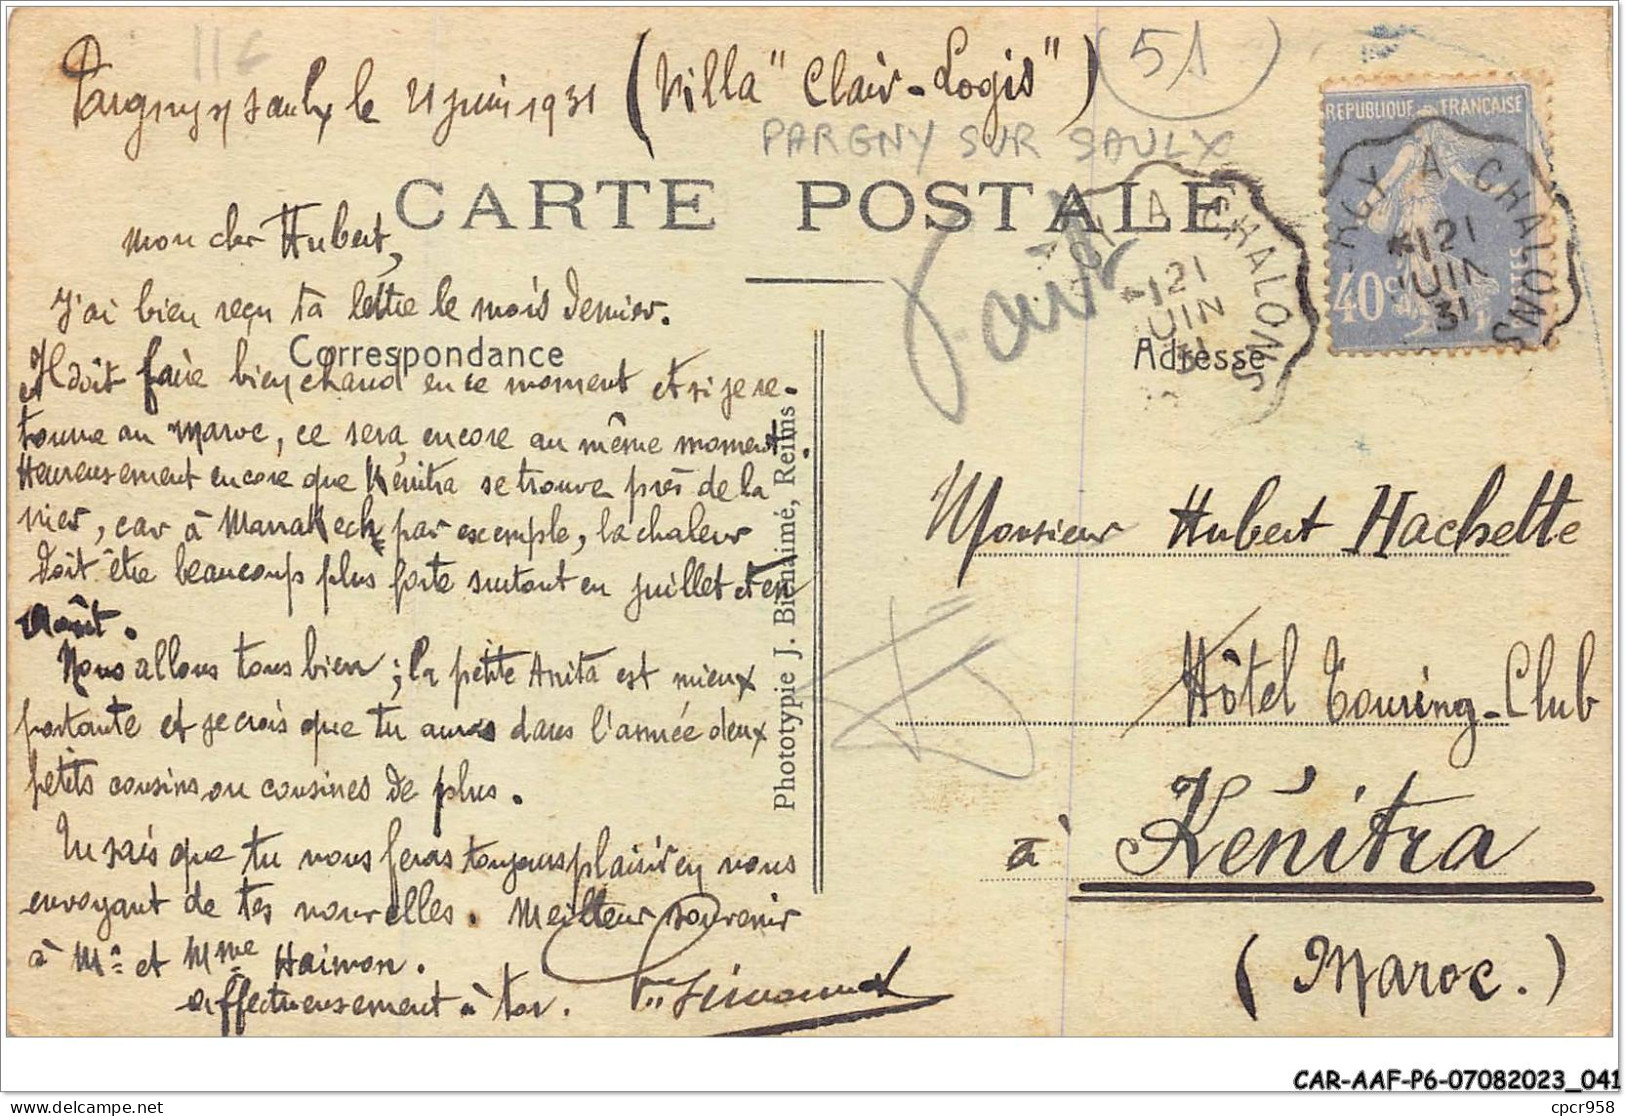 11€
Pargny s/ Saulx le 21 juin 1931 (Villa "Clair-Logis")
51
PARGNY SUR SAULX
REPUBLIQUE FRANCAISE
40c
A CHALONS
*121
JUIN
31
A CHALONS
*121
JUIN
31
CARTE POSTALE
Mon cher Hubert,
J'ai bien reçu ta lettre le mois dernier.
Correspondance
Adresse
Il doit faire bien chaud en ce moment et si je re-
tourne au Maroc, ce sera encore au même moment.
Heureusement encore que Kénitra se trouve près de la
mer, car à Marrakech par exemple, la chaleur
doit être beaucoup plus forte surtout en juillet et en
Août.
Nous allons tous bien ; la petite Anita est mieux
portante et je crois que tu auras dans l'année deux
petits cousins ou cousines de plus.
Tu sais que tu nous feras toujours plaisir en nous
envoyant de tes nouvelles. Meilleur souvenir
à Mr et Mme Haimon.
affectueusement à toi.
Phototypie J. Bienaimé, Reims
Monsieur Hubert Hachette
Hôtel Touring-Club
à Kénitra
(Maroc.)
CAR-AAF-P6-07082023_041
delcampe.net
cpcr958